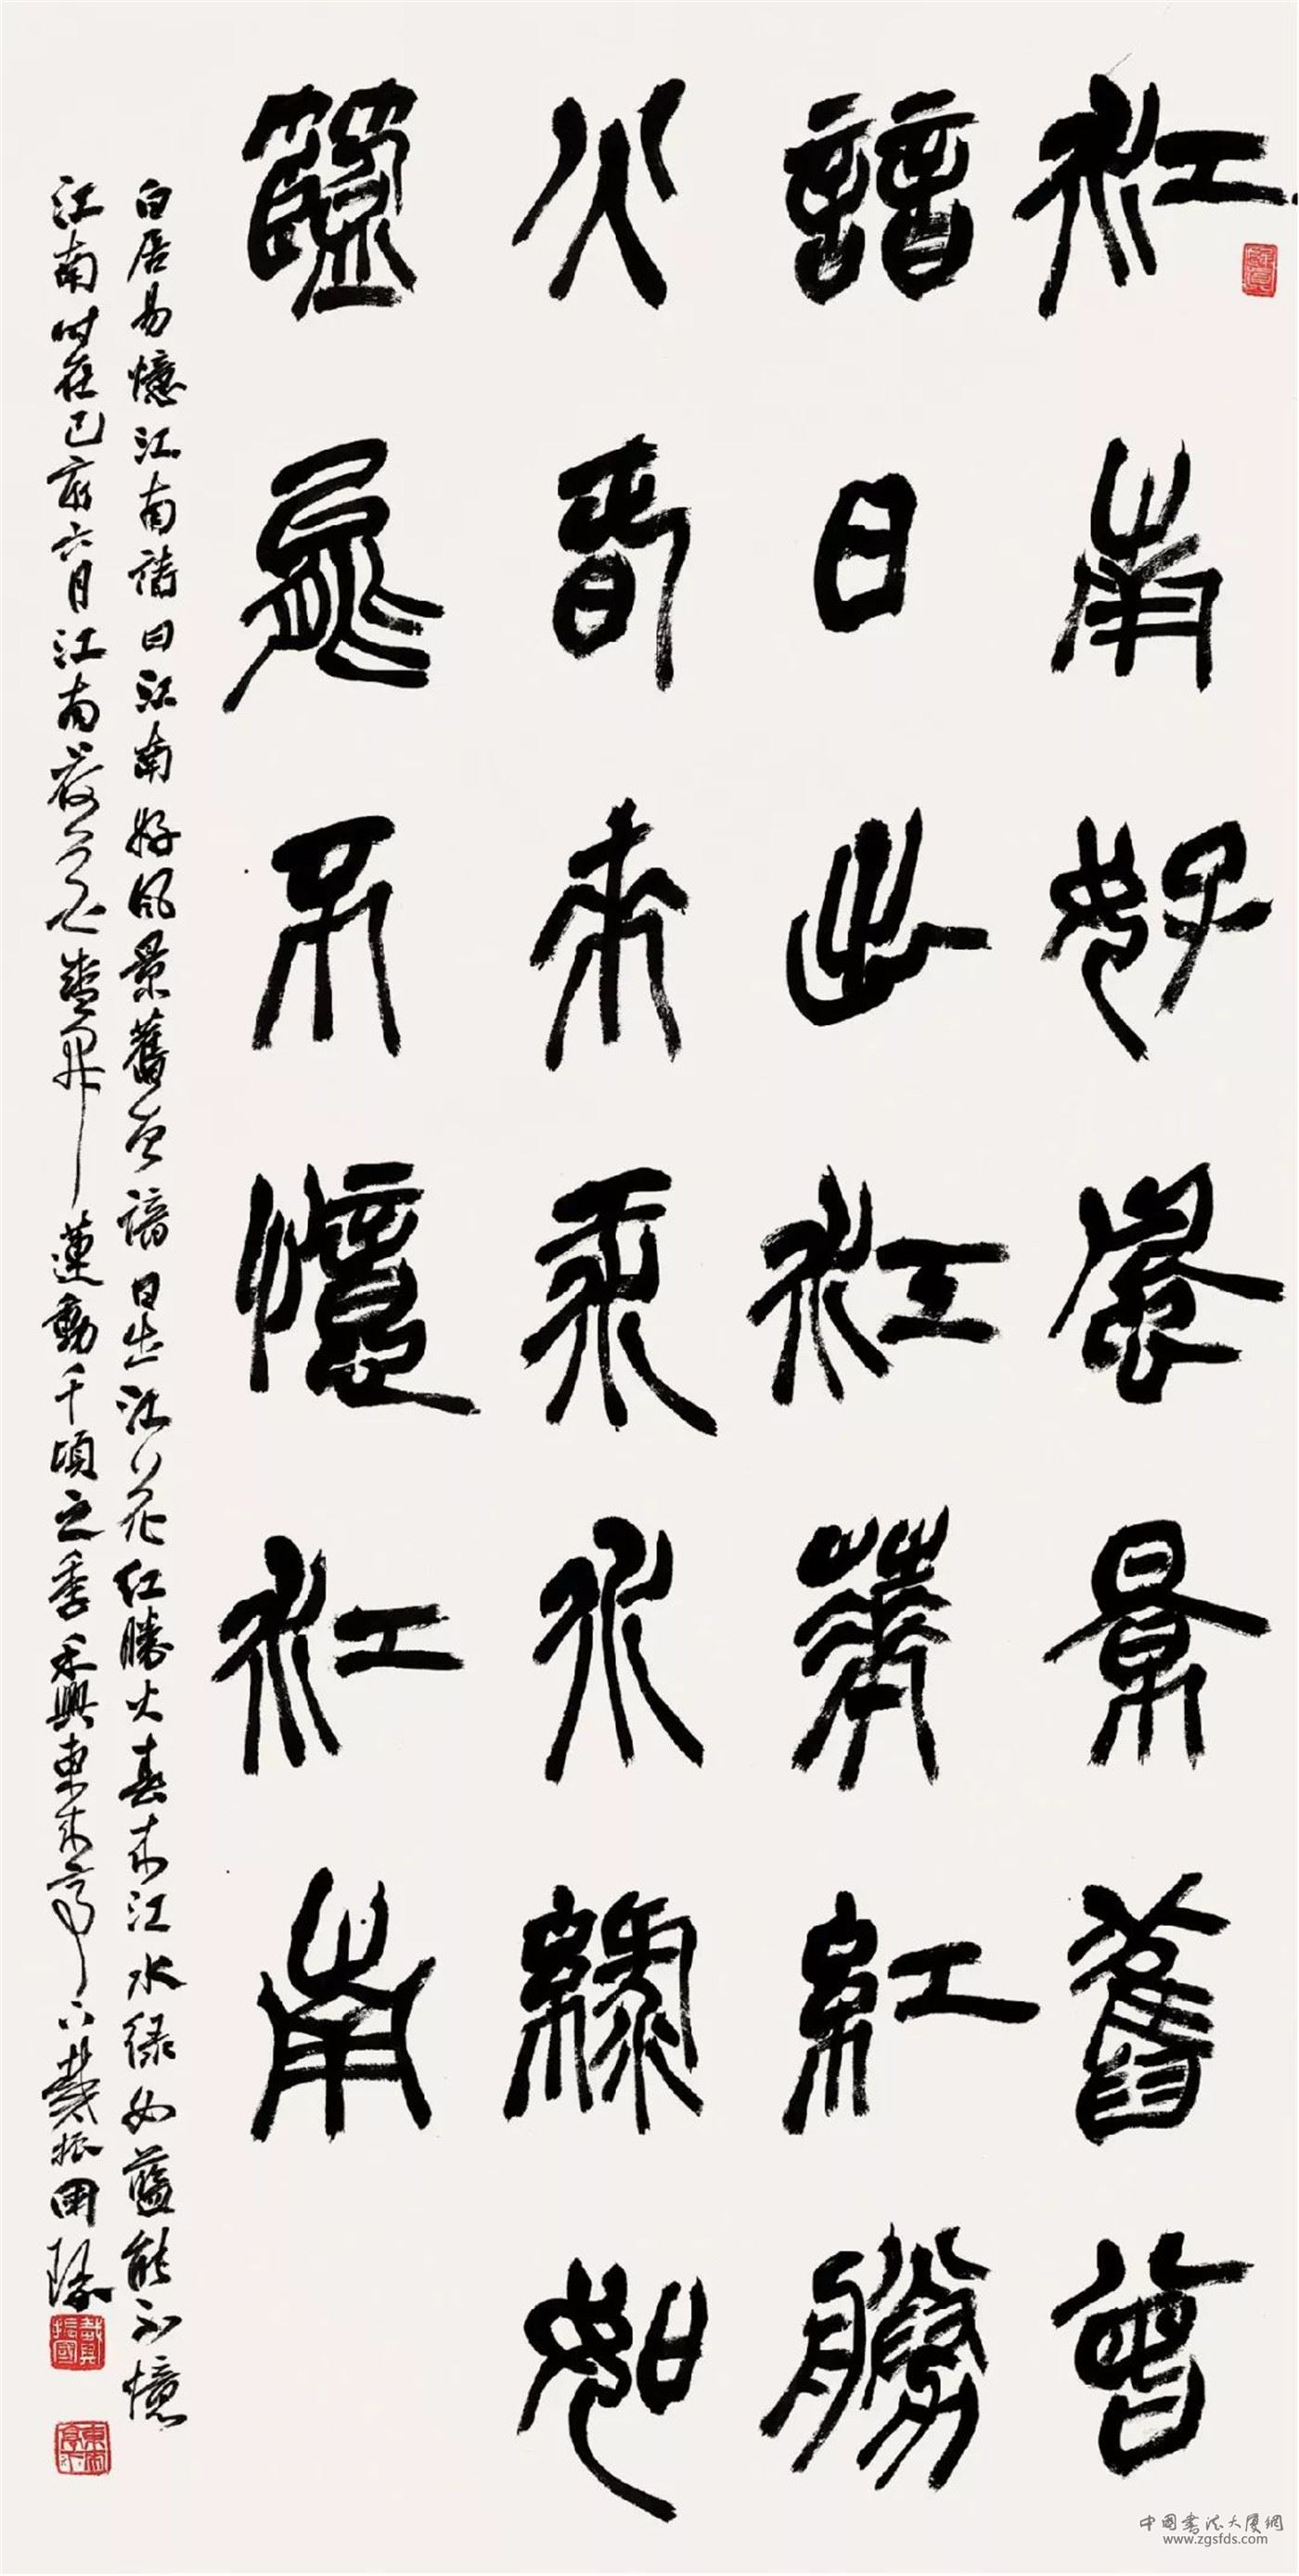 江南好風景舊曾
諳日出江華紅勝
火春來江水綠如
藍能不憶江南
白居易憶江南詩曰江南好風景舊曾諳日出江花紅勝火春來江水绿如藍能不憶
江南時在己亥六月江南荷花盛開蓮動千頃之季禾興東禾亭下戴振國琢
中國書法大厦網
www.zgsfds.com